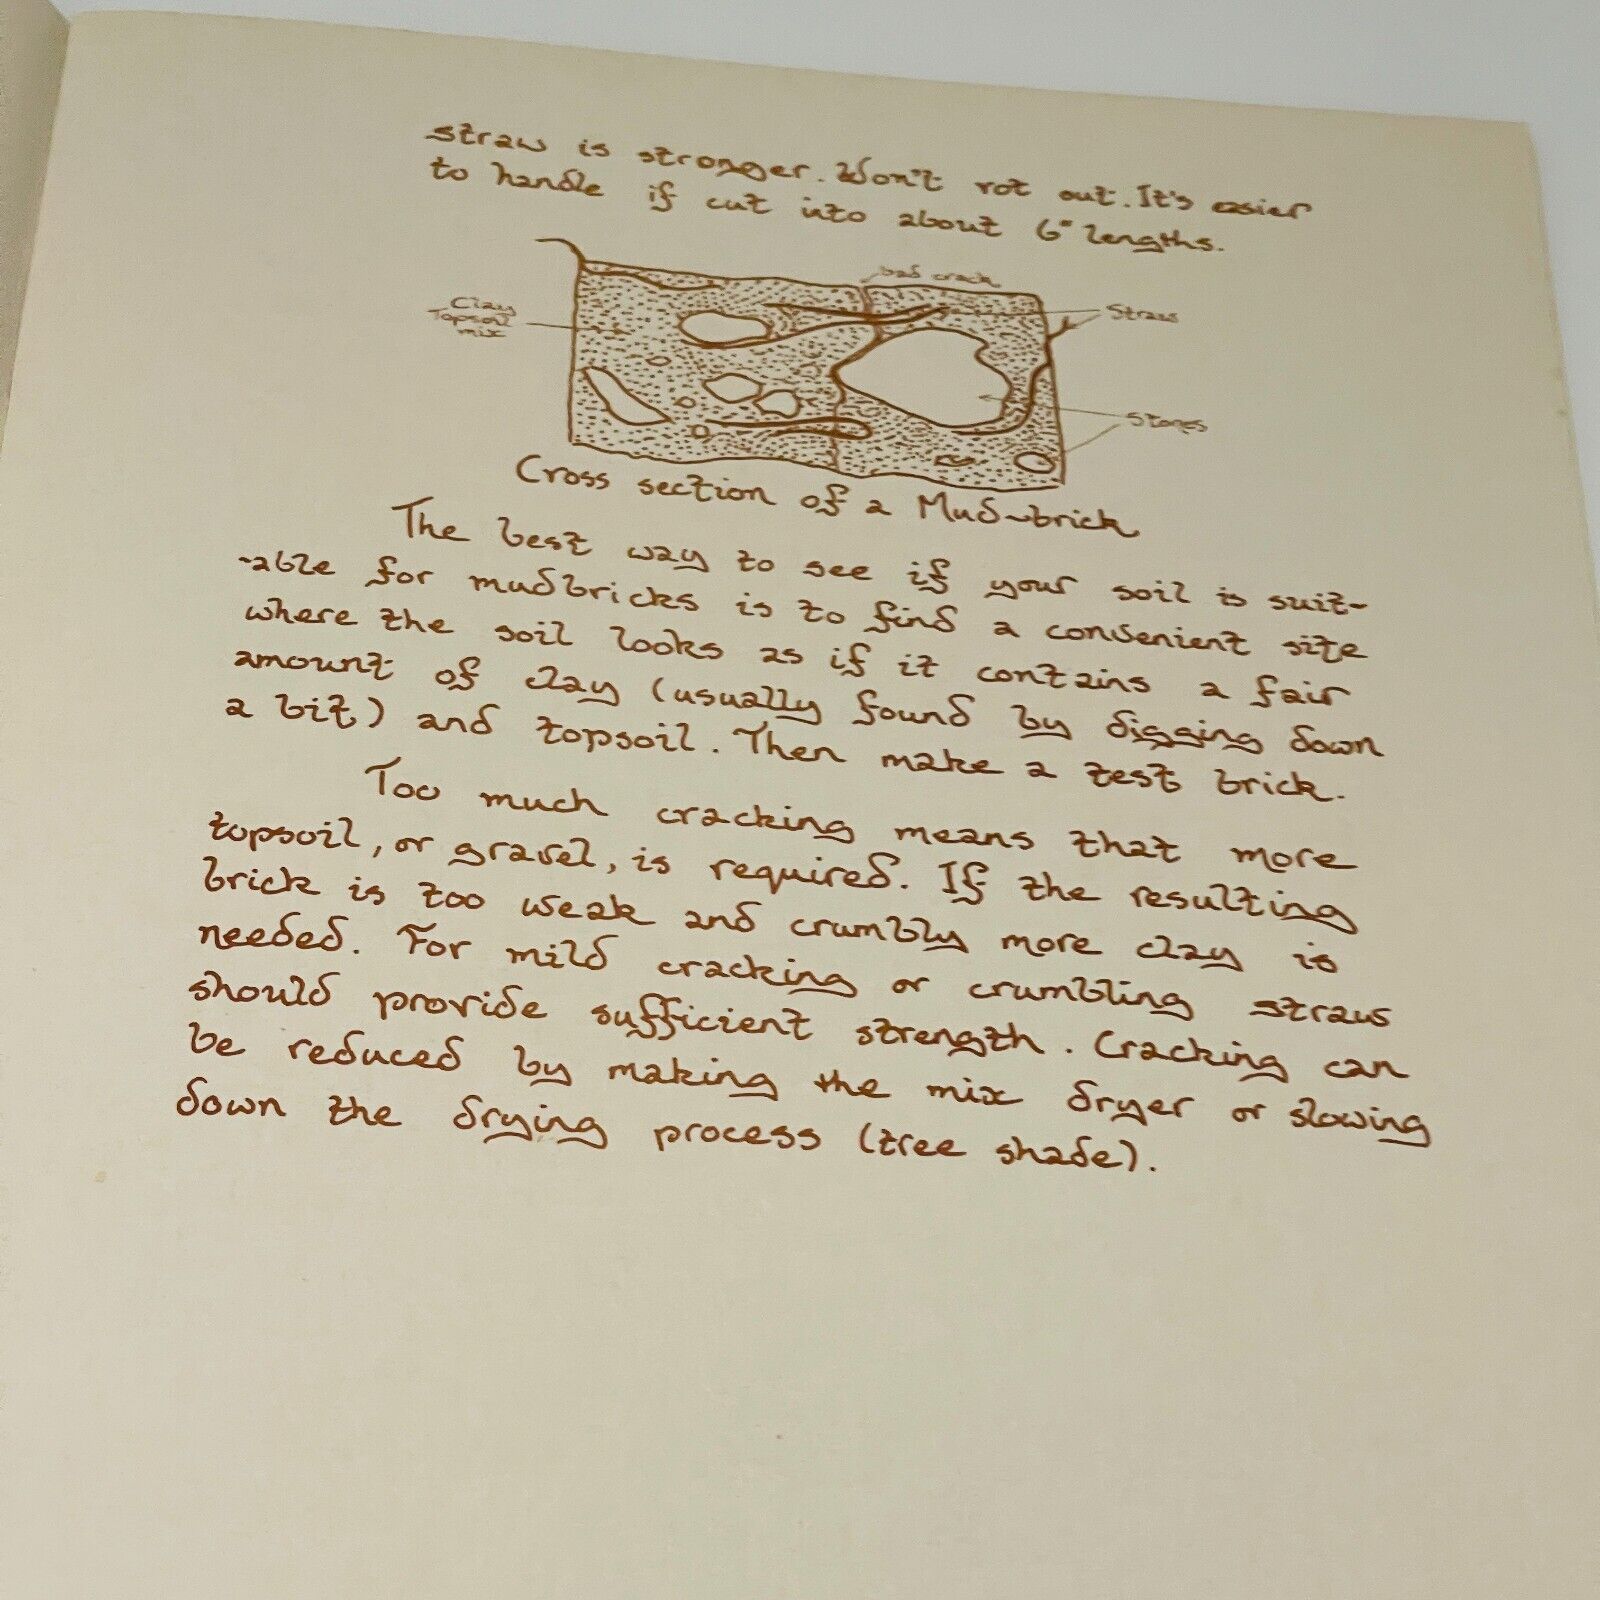 straw is stronger. Won't rot out. It's easier
to handle if cut into about 6" lengths.
bad crack
Clay
Topsoil
mix
Straw
Stones
Cross section of a Mud-brick
The best way to see if your soil is suit-
-able for mudbricks is to find a convenient site
where the soil looks as if it contains a fair
amount of clay (usually found by digging down
a bit) and topsoil. Then make a test brick.
Too much cracking means that more
topsoil, or gravel, is required. If the resulting
brick is too weak and crumbly more clay is
needed. For mild cracking or crumbling straw
should provide sufficient strength. Cracking can
be reduced by making the mix dryer or slowing
down the drying process (tree shade).